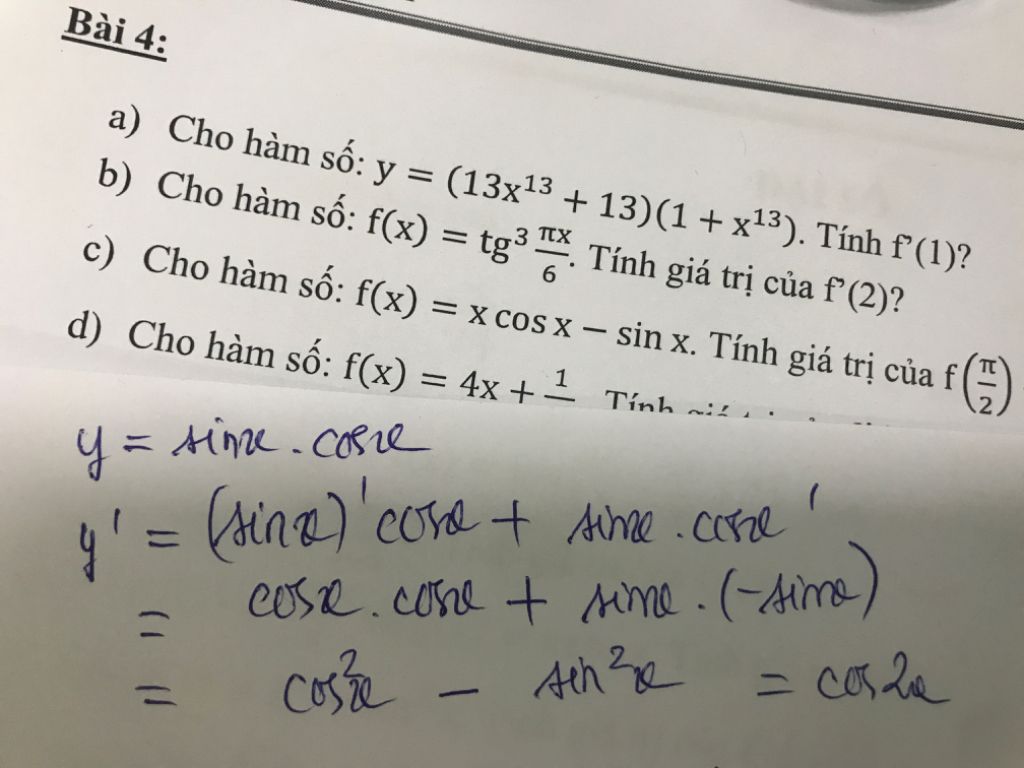 Bài 4:
a) Cho hàm số: y = (13x¹³ + 13)(1 + x¹³). Tính f’(1)?
b) Cho hàm số: f(x) = tg³ πx/6. Tính giá trị của f’(2)?
c) Cho hàm số: f(x) = x cos x − sin x. Tính giá trị của f(π/2)
d) Cho hàm số: f(x) = 4x + 1 Tính
y = sinx . cosx
y' = (sinx)' cosx + sinx . cosx '
= cosx . cosx + sinx . (-sinx)
= cos²x - sin²x = cos2x